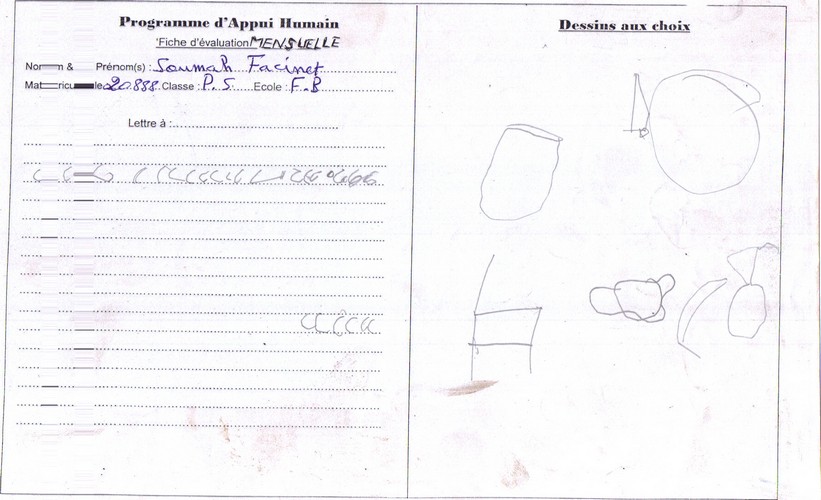 Programme d'Appui Humain
Fiche d'évaluation MENSUELLE
Nom & Prénom(s) : Soumah Facinet
Matricule 20.888 Classe : P.S. Ecole : F.B
Lettre à :
Dessins aux choix